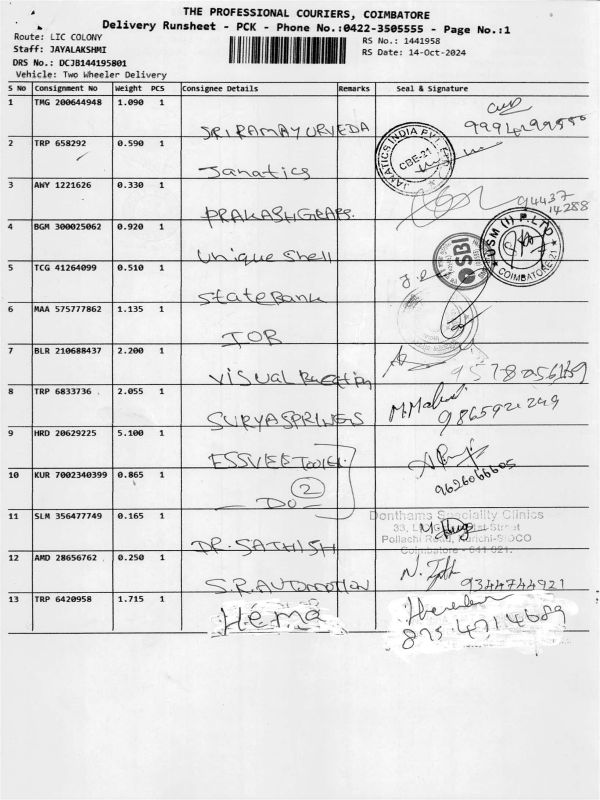 THE PROFESSIONAL COURIERS, COIMBATORE
Delivery Runsheet - PCK - Phone No.:0422-3505555 - Page No.:1
Route: LIC COLONY
RS No.: 1441958
Staff: JAYALAKSHMI
RS Date: 14-Oct-2024
DRS No.: DCJB144195801
Vehicle: Two Wheeler Delivery
S No Consignment No Weight PCS Consignee Details Remarks Seal & Signature
1 TMG 200644948 1.090 1
SRI RAMAYURVEDA
2 TRP 658292 0.590 1
JANATICS INDIA PVT.
CBE-21
Janatics
3 AWY 1221626 0.330 1
94437
14288
PRAKASHGRAPS.
4 BGM 300025062 0.920 1
USM (I) P. LTD
COIMBATORE-21
Unique Shell
SBI
5 TCG 41264099 0.510 1
State Bank
6 MAA 575777862 1.135 1
IOB
7 BLR 210688437 2.200 1
VISUAL
8 TRP 6833736 2.055 1
SURYA SPRINGS
9865921249
9 HRD 20629225 5.100 1
ESSVEE Tools.
9626066605
10 KUR 7002340399 0.865 1
2
- DO -
11 SLM 356477749 0.165 1
Donthams Speciality Clinics
Pollachi Road, Kurichi-SIDCO
Coimbatore - 641 021.
DR. SATHISH
12 AMD 28656762 0.250 1
S.R. AUTOMOTION
9344744921
13 TRP 6420958 1.715 1
Hema
8754714689